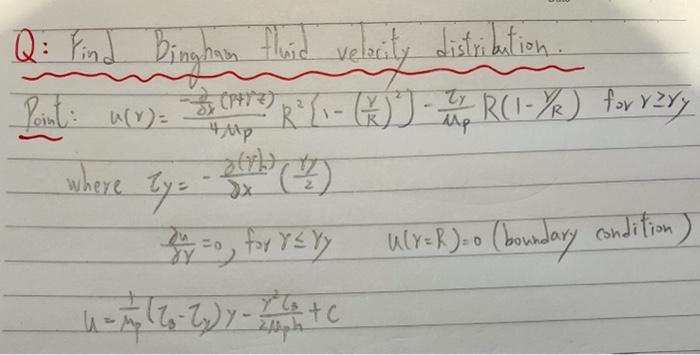 Q: Find Bingham fluid velocity distribution.
Point: u(r) = -∂/∂x (P+γz) / 4μp R² [1 - (r/R)²] - τy/μp R(1 - r/R) for r≥ry
where τy = - ∂(γh)/∂x (ry/2)
∂u/∂r = 0, for r≤ry u(r=R)=0 (boundary condition)
u = 1/μp (τ0 - τy) y - y²τ0/2μph + C